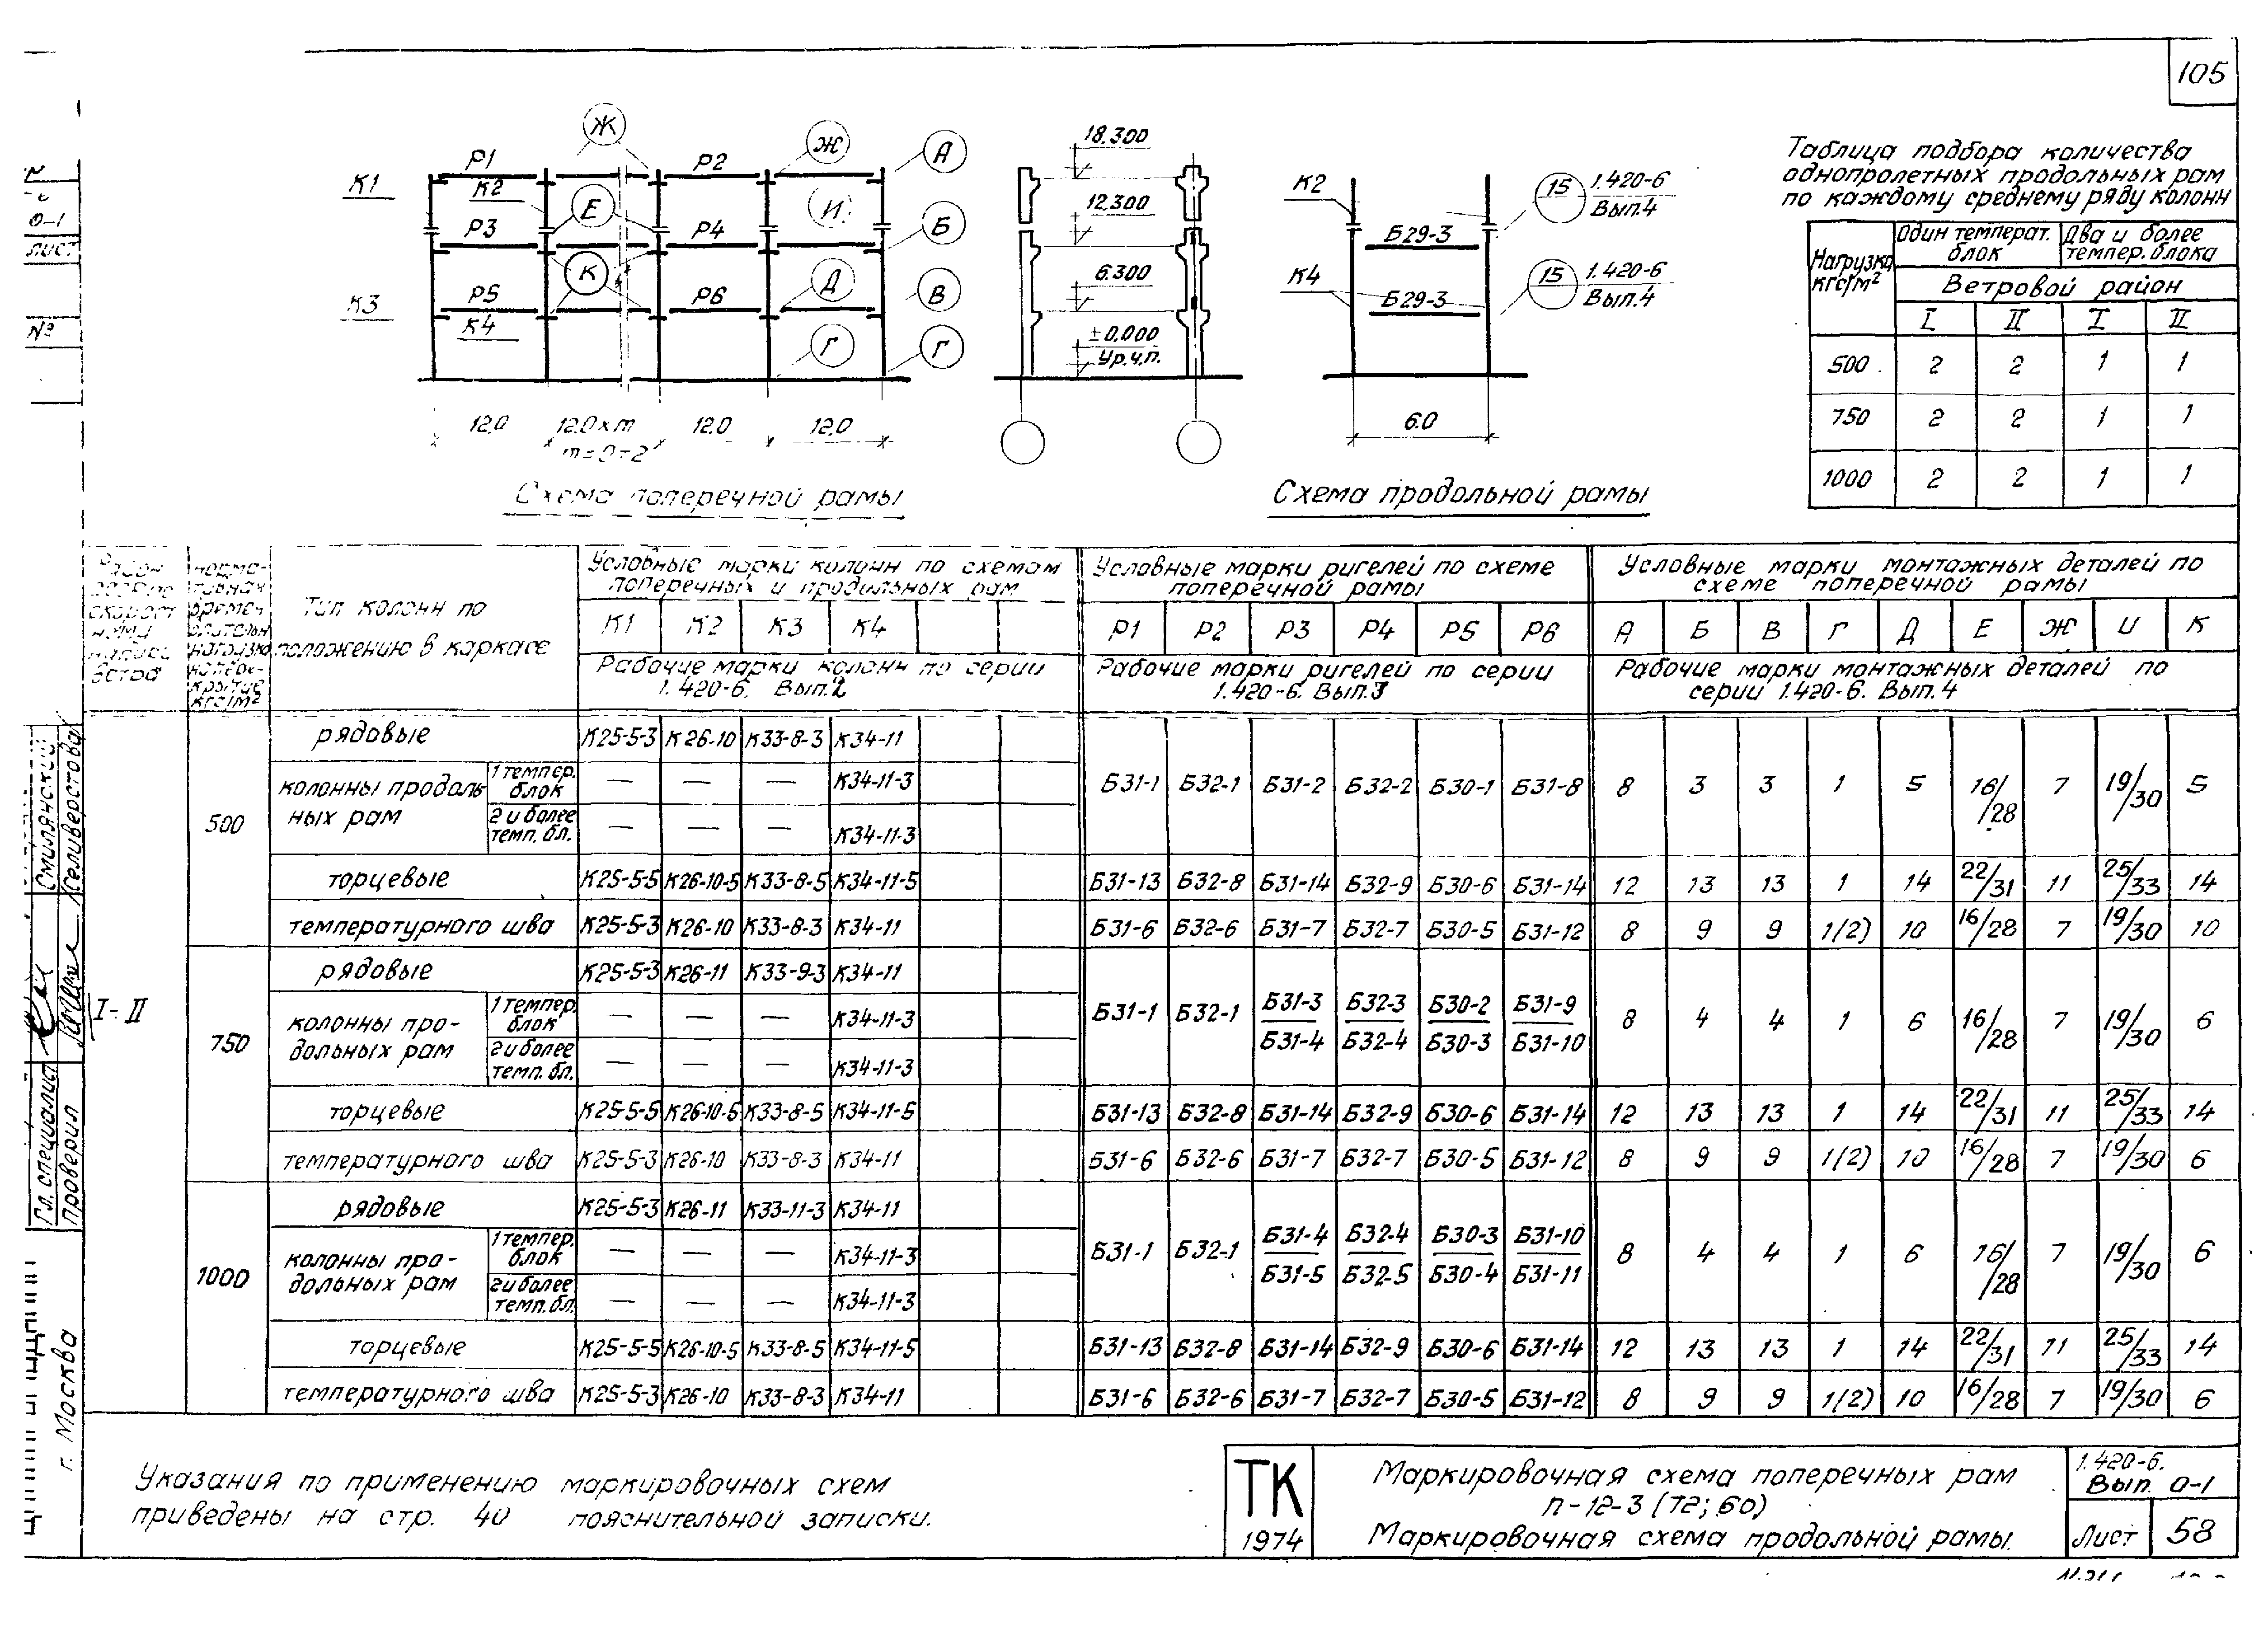 105
Ж
Ж
А
Р1
Р2
К1
К2
Е
И
Р3
Р4
Б
К
Д
В
Р5
Р6
К3
К4
Г
Г
12.0
12.0 х m
m=0÷2
12.0
12.0
Схема поперечной рамы
18.300
12.300
6.300
±0.000
Ур.ч.п.
К2
15
1.420-6
Вып.4
Б29-3
К4
15
1.420-6
Вып.4
Б29-3
6.0
Схема продольной рамы
Таблица подбора количества
однопролетных продольных рам
по каждому среднему ряду колонн
Нагрузка кгс/м² Один температ. блок Два и более темпер. блока
Ветровой район
I II I II
500 2 2 1 1
750 2 2 1 1
1000 2 2 1 1
0-1
лист
№
Тип колонн по
положению в каркасе
Условные марки колонн по схемам
поперечных и продольных рам
К1 К2 К3 К4
Рабочие марки колонн по серии
1.420-6. Вып.2
Условные марки ригелей по схеме
поперечной рамы
Р1 Р2 Р3 Р4 Р5 Р6
Рабочие марки ригелей по серии
1.420-6. Вып.3
Условные марки монтажных деталей по
схеме поперечной рамы
А Б В Г Д Е Ж И К
Рабочие марки монтажных деталей по
серии 1.420-6. Вып.4
I-II
500
рядовые К25-5-3 К26-10 К33-8-3 К34-11
колонны продоль
ных рам
1 темпер. блок — — — К34-11-3
2 и более темп. бл. — — — К34-11-3
Б31-1 Б32-1 Б31-2 Б32-2 Б30-1 Б31-8 8 3 3 1 5 16/28 7 19/30 5
торцевые К25-5-5 К26-10-5 К33-8-5 К34-11-5 Б31-13 Б32-8 Б31-14 Б32-9 Б30-6 Б31-14 12 13 13 1 14 22/31 11 25/33 14
температурного шва К25-5-3 К26-10 К33-8-3 К34-11 Б31-6 Б32-6 Б31-7 Б32-7 Б30-5 Б31-12 8 9 9 1(2) 10 16/28 7 19/30 10
750
рядовые К25-5-3 К26-11 К33-9-3 К34-11
колонны про-
дольных рам
1 темпер. блок — — — К34-11-3
2 и более темп. бл. — — — К34-11-3
Б31-1 Б32-1 Б31-3 Б32-3 Б30-2 Б31-9 8 4 4 1 6 16/28 7 19/30 6
Б31-4 Б32-4 Б30-3 Б31-10
торцевые К25-5-5 К26-10-5 К33-8-5 К34-11-5 Б31-13 Б32-8 Б31-14 Б32-9 Б30-6 Б31-14 12 13 13 1 14 22/31 11 25/33 14
температурного шва К25-5-3 К26-10 К33-8-3 К34-11 Б31-6 Б32-6 Б31-7 Б32-7 Б30-5 Б31-12 8 9 9 1(2) 10 16/28 7 19/30 6
1000
рядовые К25-5-3 К26-11 К33-11-3 К34-11
колонны про-
дольных рам
1 темпер. блок — — — К34-11-3
2 и более темп. бл. — — — К34-11-3
Б31-1 Б32-1 Б31-4 Б32-4 Б30-3 Б31-10 8 4 4 1 6 16/28 7 19/30 6
Б31-5 Б32-5 Б30-4 Б31-11
торцевые К25-5-5 К26-10-5 К33-8-5 К34-11-5 Б31-13 Б32-8 Б31-14 Б32-9 Б30-6 Б31-14 12 13 13 1 14 22/31 11 25/33 14
температурного шва К25-5-3 К26-10 К33-8-3 К34-11 Б31-6 Б32-6 Б31-7 Б32-7 Б30-5 Б31-12 8 9 9 1(2) 10 16/28 7 19/30 6
Смилянский
Селиверстова
Гл. специалист
проверил
г. Москва
Указания по применению маркировочных схем
приведены на стр. 40 пояснительной записки.
ТК
1974
Маркировочная схема поперечных рам
п-12-3 (72; 60)
Маркировочная схема продольной рамы.
1.420-6.
Вып. 0-1
Лист 58